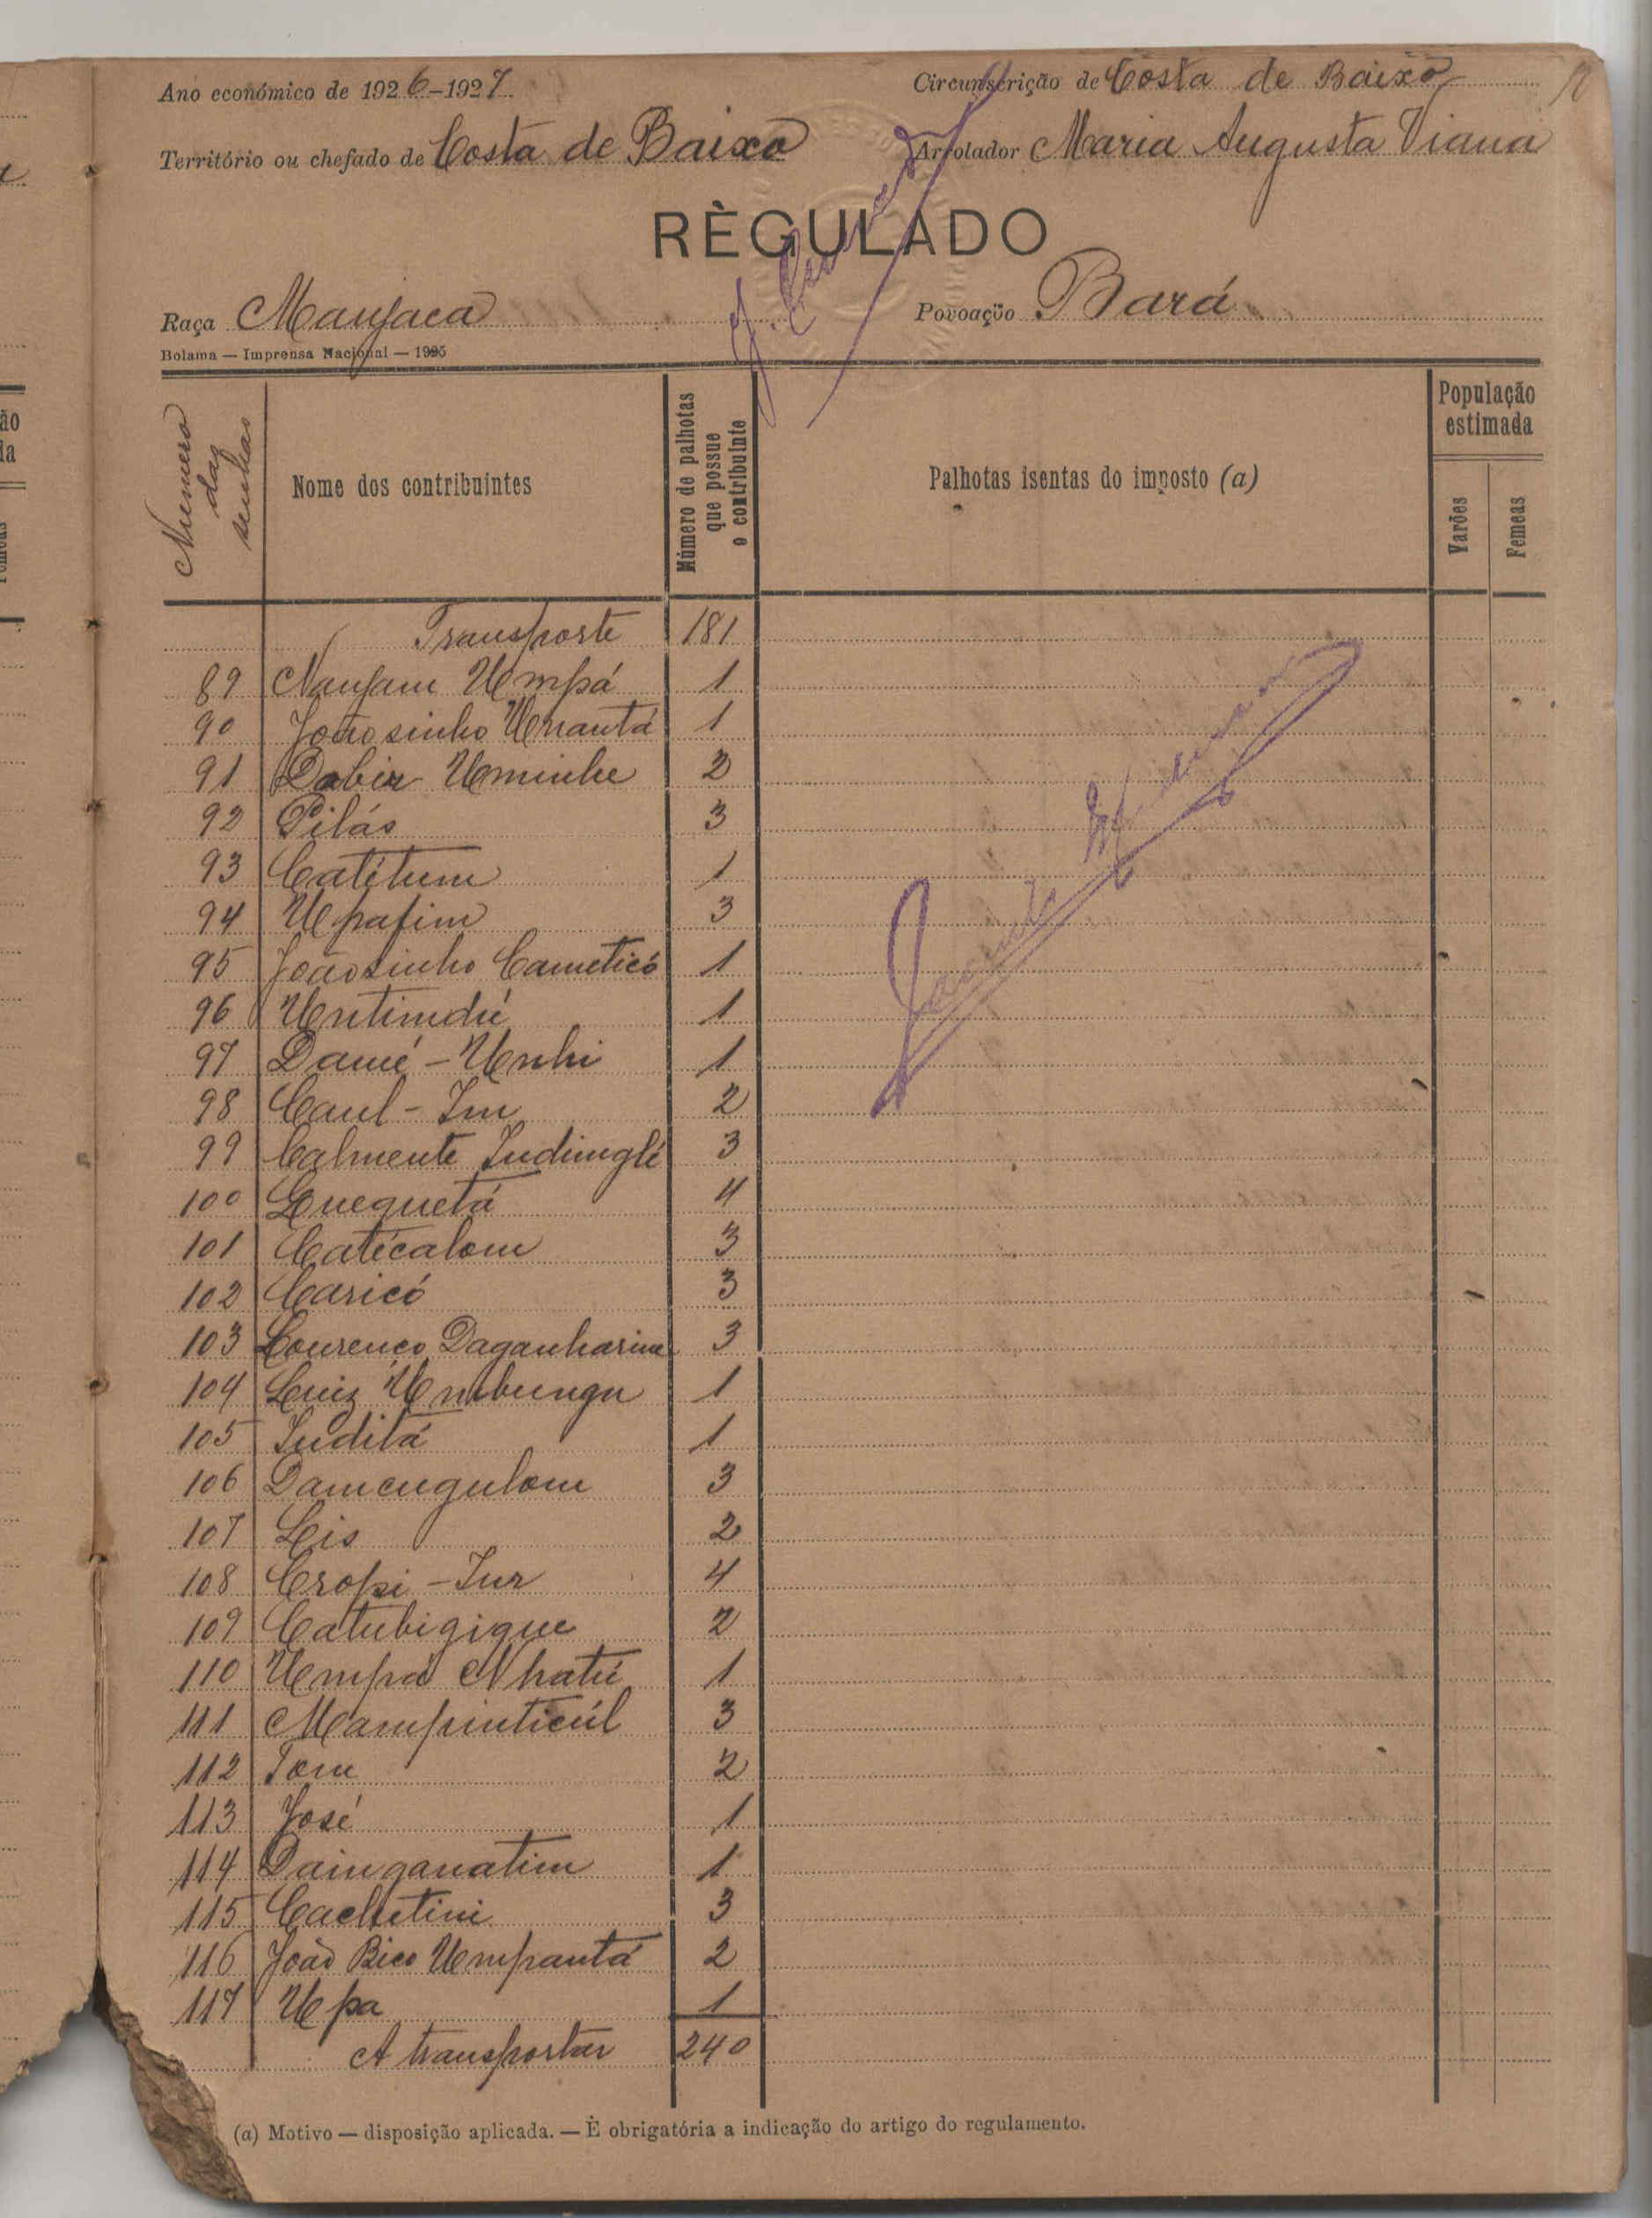 Ano económico de 1926-1927
Circunscrição de Costa de Baixo
Território ou chefado de Costa de Baixo
Arrolador Maria Augusta Viana
RÈGULADO
Raça Manjaca
Povoação Bará
Bolama — Imprensa Nacional — 1925
Numero das senhas
Nome dos contribuintes
Número de palhotas que possue o contribuinte
Palhotas isentas do imposto (a)
População estimada
Varões
Femeas
Transporte 181
89 Nanjam Umpá 1
90 Joãosinho Unantá 1
91 Dabia Uminhe 2
92 Pilás 3
93 Catitum 1
94 Upafim 3
95 Joãosinho Cameticó 1
96 Untimdú 1
97 Damé - Unhi 1
98 Caul - Im 2
99 Calmente Indunglé 3
100 Luequetá 4
101 Catécalom 3
102 Caricó 3
103 Lourenço Daganharim 3
104 Luiz Umbungu 1
105 Inditá 1
106 Damcugulom 3
107 Lis 2
108 Cropi - Iur 4
109 Catubigique 2
110 Umpá Nhatú 1
111 Mampinticúl 3
112 Tom 2
113 José 1
114 Dainganatim 1
115 Cachitini 3
116 João Bico Umpantá 2
117 Upa 1
A transportar 240
(a) Motivo — disposição aplicada. — É obrigatória a indicação do artigo do regulamento.